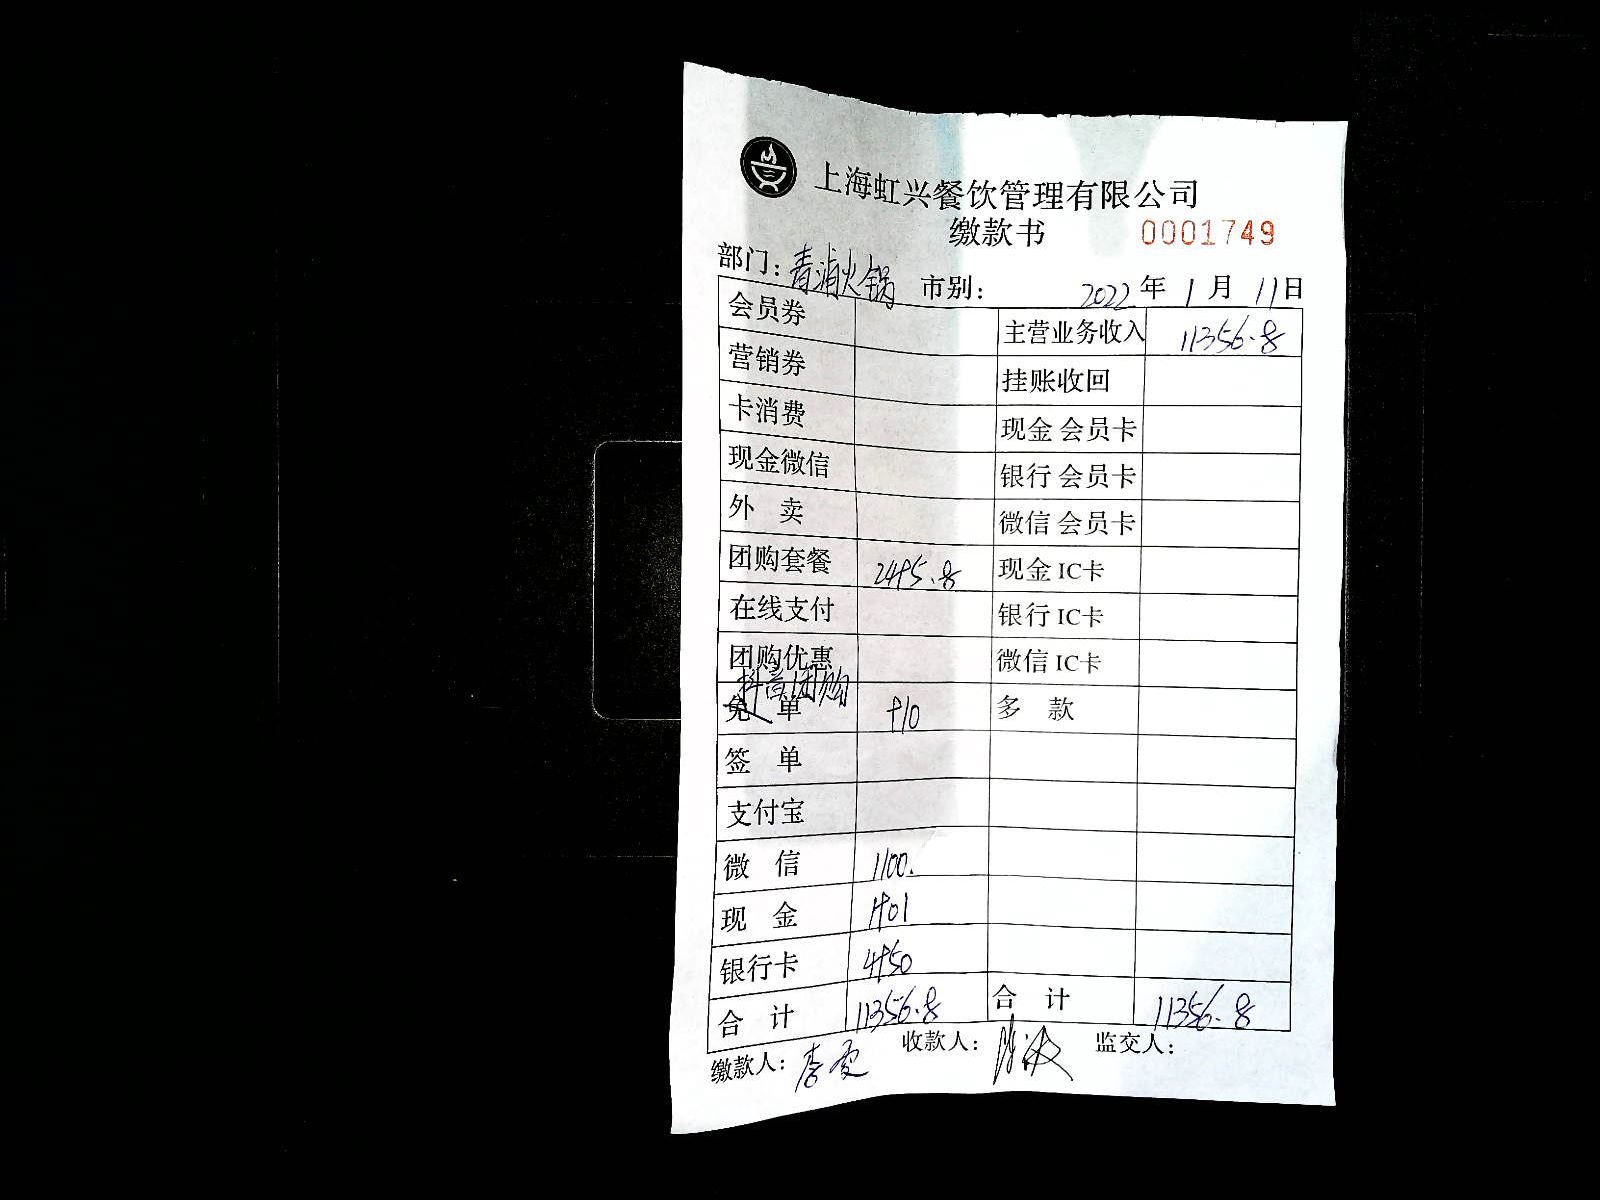 上海虹兴餐饮管理有限公司
缴款书 0001749
部门：青浦火锅 市别： 2022年1月11日
会员券 主营业务收入 11356.8
营销券 挂账收回
卡消费 现金 会员卡
现金微信 银行 会员卡
外 卖 微信 会员卡
团购套餐 2495.8 现金 IC卡
在线支付 银行 IC卡
团购优惠 微信 IC卡
抖音团购
免 单 910 多 款
签 单
支付宝
微 信 1100.
现 金 1901
银行卡 4950
合 计 11356.8 合 计 11356.8
缴款人： 收款人： 监交人：